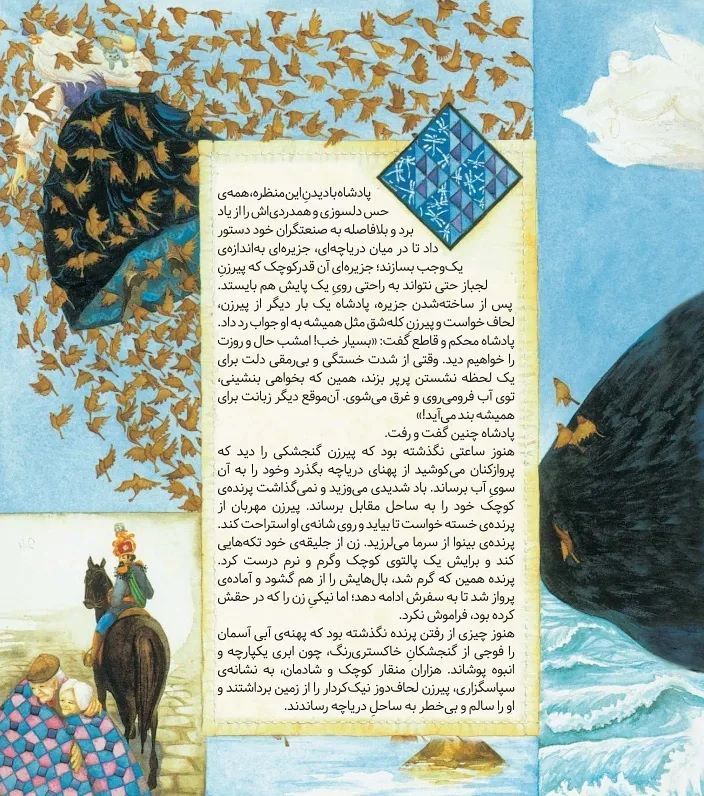 پادشاه با دیدنِ این منظره، همه‌ی
حس دلسوزی و همدردی‌اش را از یاد
برد و بلافاصله به صنعتگران خود دستور
داد تا در میان دریاچه‌ای، جزیره‌ای به‌اندازه‌ی
یک‌وجب بسازند؛ جزیره‌ای آن قدرکوچک که پیرزنِ
لجباز حتی نتواند به راحتی رویِ یک پایش هم بایستد.
پس از ساخته‌شدن جزیره، پادشاه یک بار دیگر از پیرزن،
لحاف خواست و پیرزنِ کله‌شق مثل همیشه به او جواب رد داد.
پادشاه محکم و قاطع گفت: «بسیار خب! امشب حال و روزت
را خواهیم دید. وقتی از شدت خستگی و بی‌رمقی دلت برای
یک لحظه نشستن پرپر بزند، همین که بخواهی بنشینی،
توی آب فرومی‌روی و غرق می‌شوی. آن‌موقع دیگر زبانت برای
همیشه بند می‌آید!»
پادشاه چنین گفت و رفت.
هنوز ساعتی نگذشته بود که پیرزن گنجشکی را دید که
پروازکنان می‌کوشید از پهنای دریاچه بگذرد وخود را به آن
سویِ آب برساند. باد شدیدی می‌وزید و نمی‌گذاشت پرنده‌ی
کوچک خود را به ساحل مقابل برساند. پیرزن مهربان از
پرنده‌ی خسته خواست تا بیاید و روی شانه‌ی او استراحت کند.
پرنده‌ی بینوا از سرما می‌لرزید. زن از جلیقه‌ی خود تکه‌هایی
کند و برایش یک پالتوی کوچک وگرم و نرم درست کرد.
پرنده همین که گرم شد، بال‌هایش را از هم گشود و آماده‌ی
پرواز شد تا به سفرش ادامه دهد؛ اما نیکیِ زن را که در حقش
کرده بود، فراموش نکرد.
هنوز چیزی از رفتن پرنده نگذشته بود که پهنه‌ی آبی آسمان
را فوجی از گنجشکانِ خاکستری‌رنگ، چون ابری یکپارچه و
انبوه پوشاند. هزاران منقار کوچک و شادمان، به نشانه‌ی
سپاسگزاری، پیرزن لحاف‌دوز نیک‌کردار را از زمین برداشتند و
او را سالم و بی‌خطر به ساحلِ دریاچه رساندند.